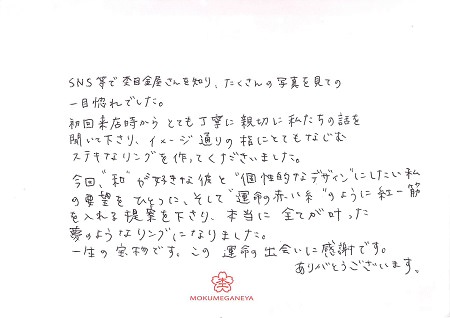 SNS等で杢目金屋さんを知り、たくさんの写真を見ての
一目惚れでした。
初回来店時から とても丁寧に親切に私たちの話を
聞いて下さり、イメージ通りの指にとてもなじむ
ステキなリングを作ってくださいました。
今回、"和"が好きな彼と"個性的なデザイン"にしたい私
の要望をひとつに、そして"運命の赤い糸"のように紅一筋
を入れる提案を下さり、本当に全てが叶った
夢のようなリングになりました。
一生の宝物です。この 運命の出会いに感謝です。
ありがとうございます。
MOKUMEGANEYA